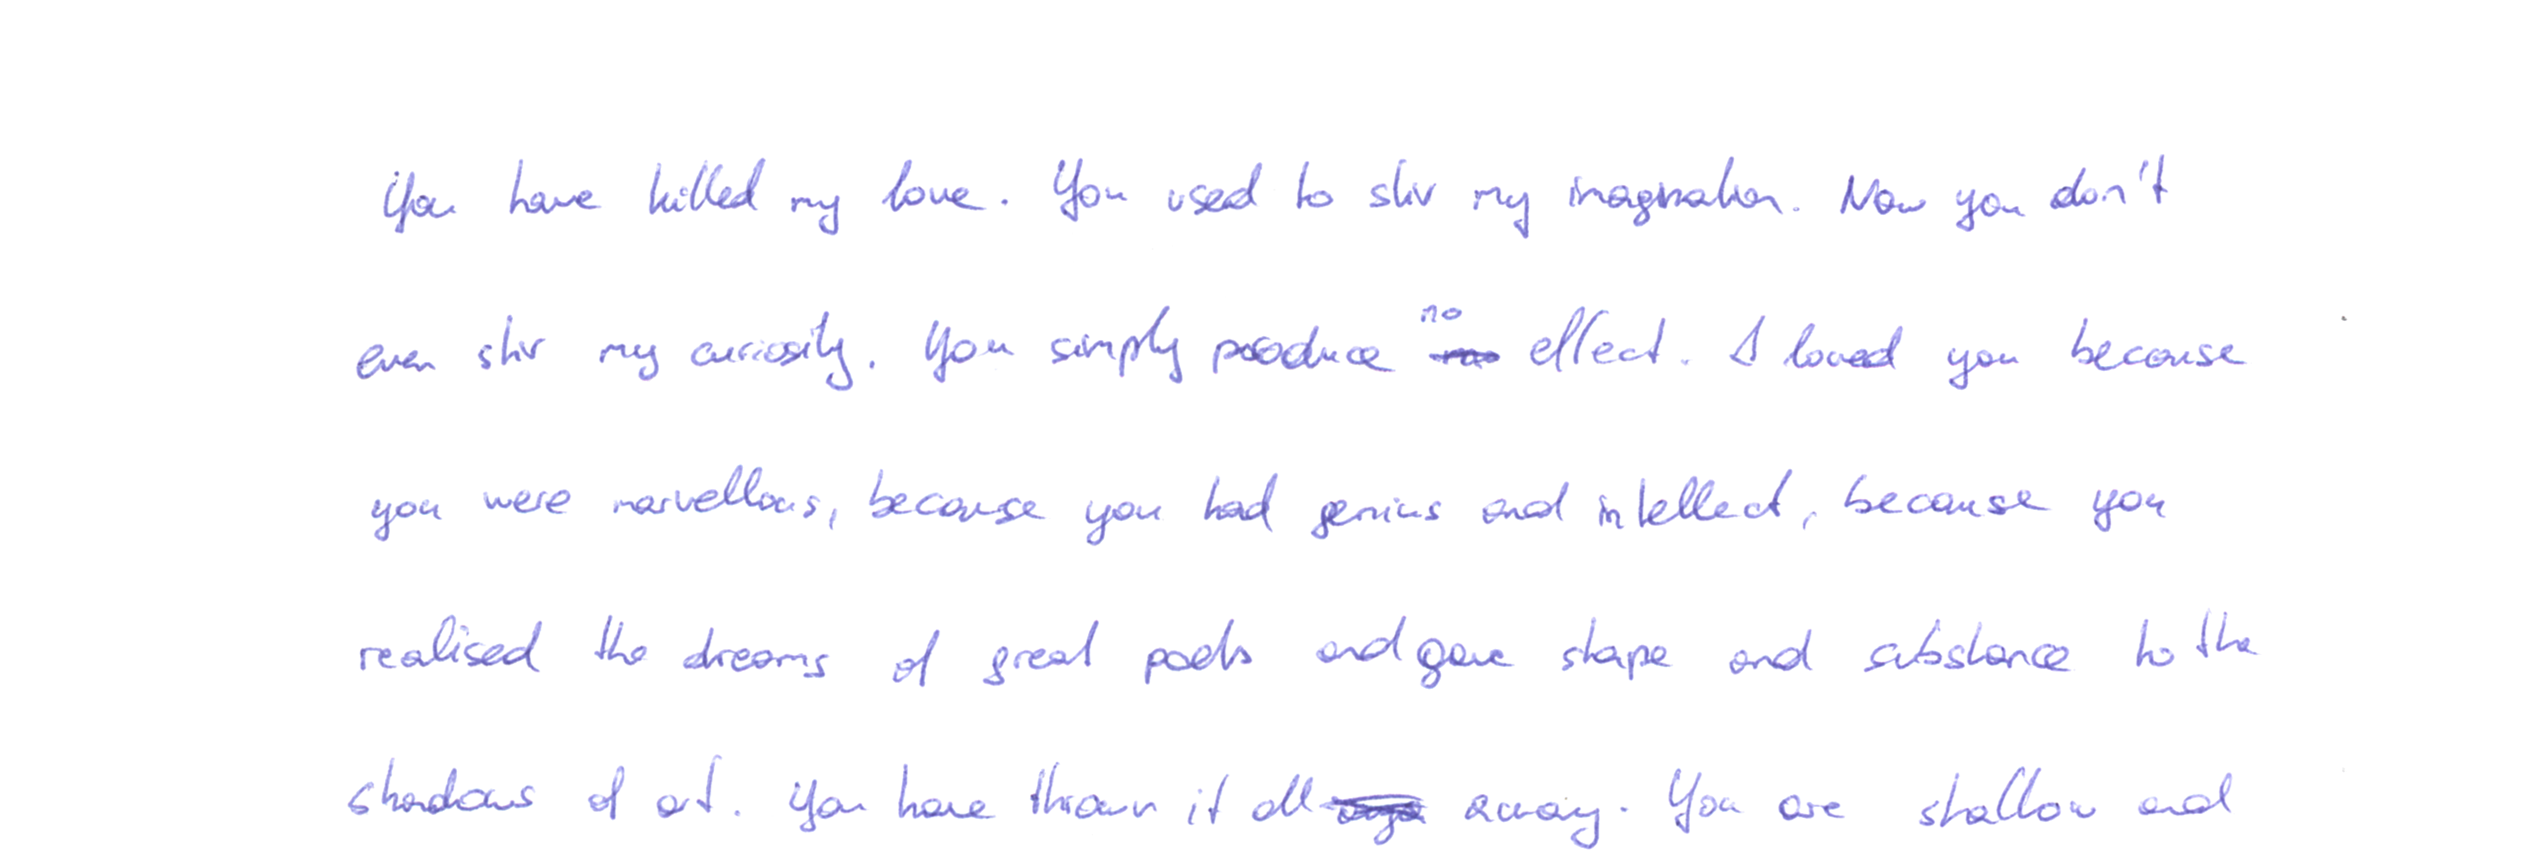 You have killed my love. You used to stir my imagination. Now you don't
even stir my curiosity. You simply produce no effect. I loved you because
you were marvellous, because you had genius and intellect, because you
realised the dreams of great poets and gave shape and substance to the
shadows of art. You have thrown it all away. You are shallow and